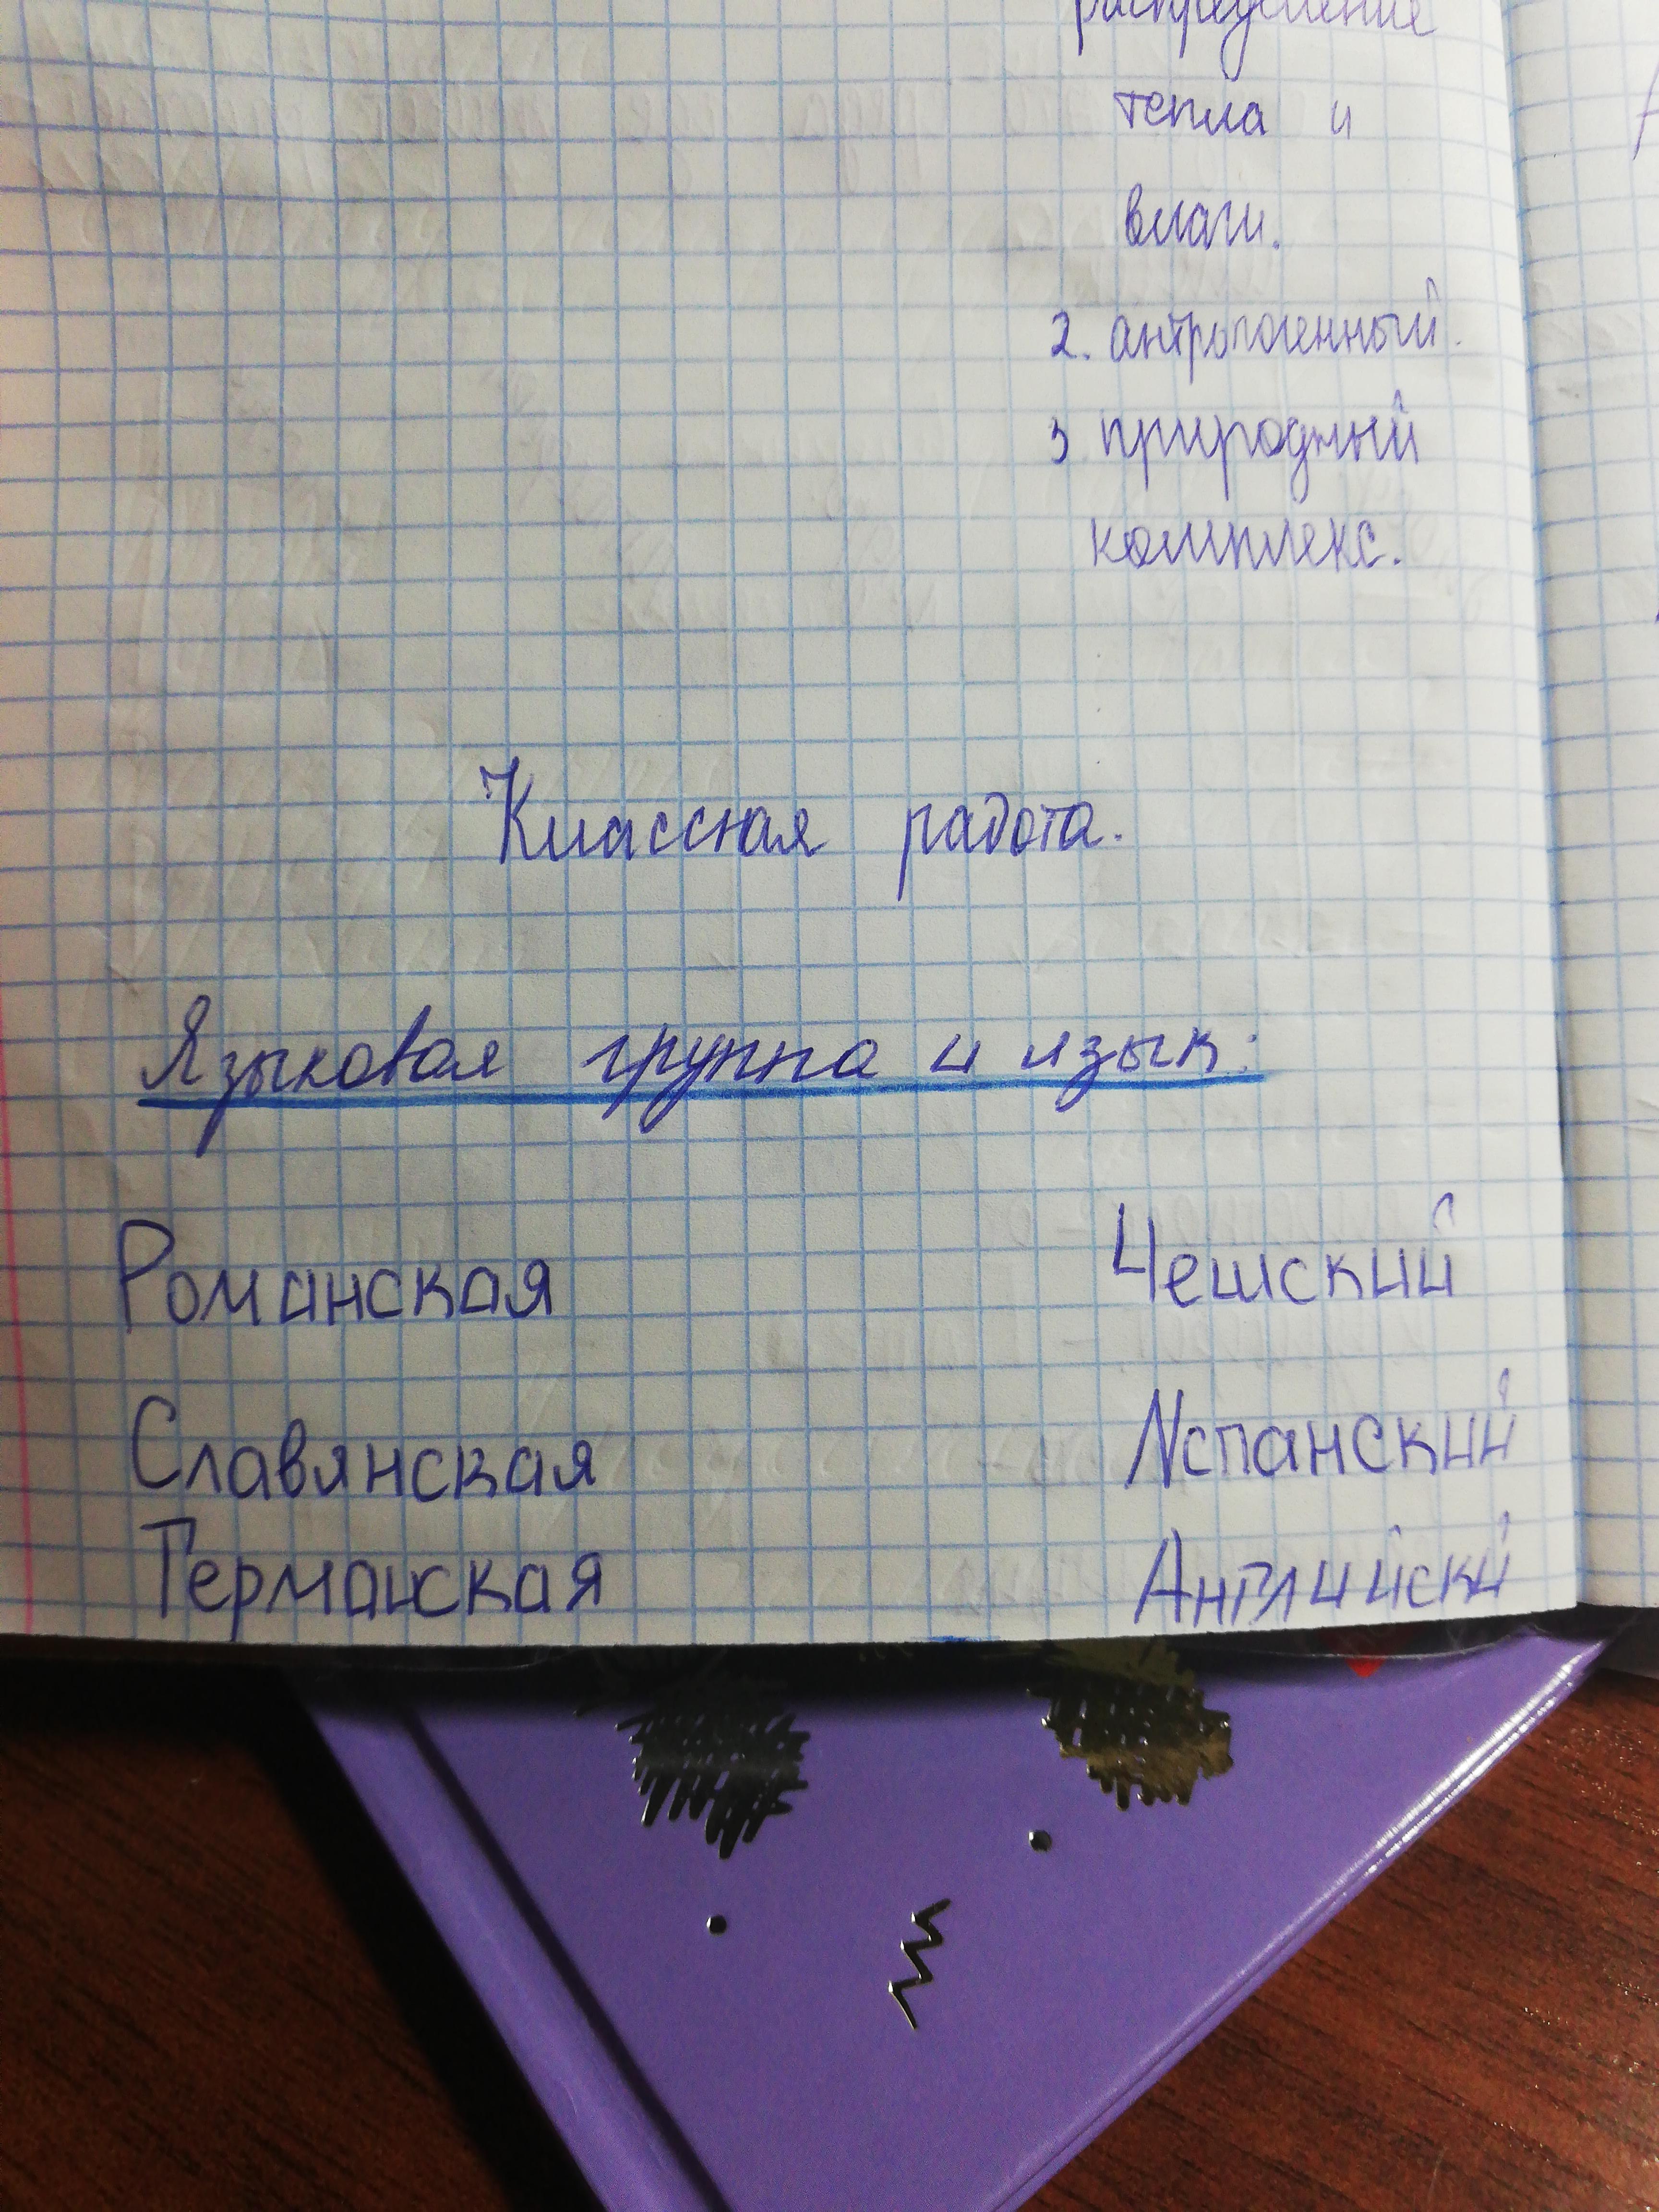 распределение
тепла и
влаги.
2. антропогенный.
3 природный
комплекс.
Классная работа.
Языковая группа и язык:
Романская Чешский
Славянская Испанский
Германская Английски